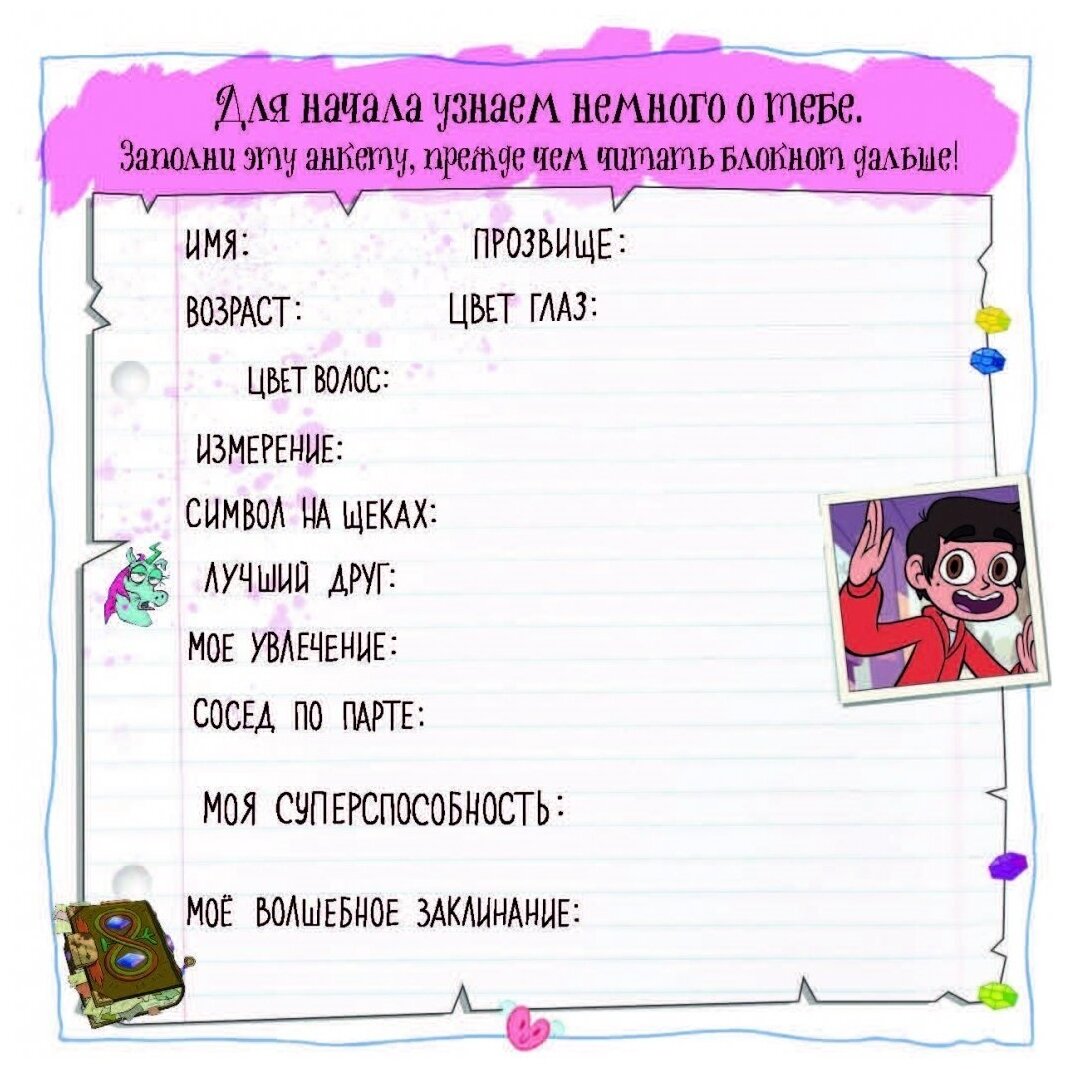 Для начала узнаем немного о тебе.
Заполни эту анкету, прежде чем читать блокнот дальше!
ИМЯ: ПРОЗВИЩЕ:
ВОЗРАСТ: ЦВЕТ ГЛАЗ:
ЦВЕТ ВОЛОС:
ИЗМЕРЕНИЕ:
СИМВОЛ НА ЩЕКАХ:
ЛУЧШИЙ ДРУГ:
МОЕ УВЛЕЧЕНИЕ:
СОСЕД ПО ПАРТЕ:
МОЯ СУПЕРСПОСОБНОСТЬ:
МОЁ ВОЛШЕБНОЕ ЗАКЛИНАНИЕ: